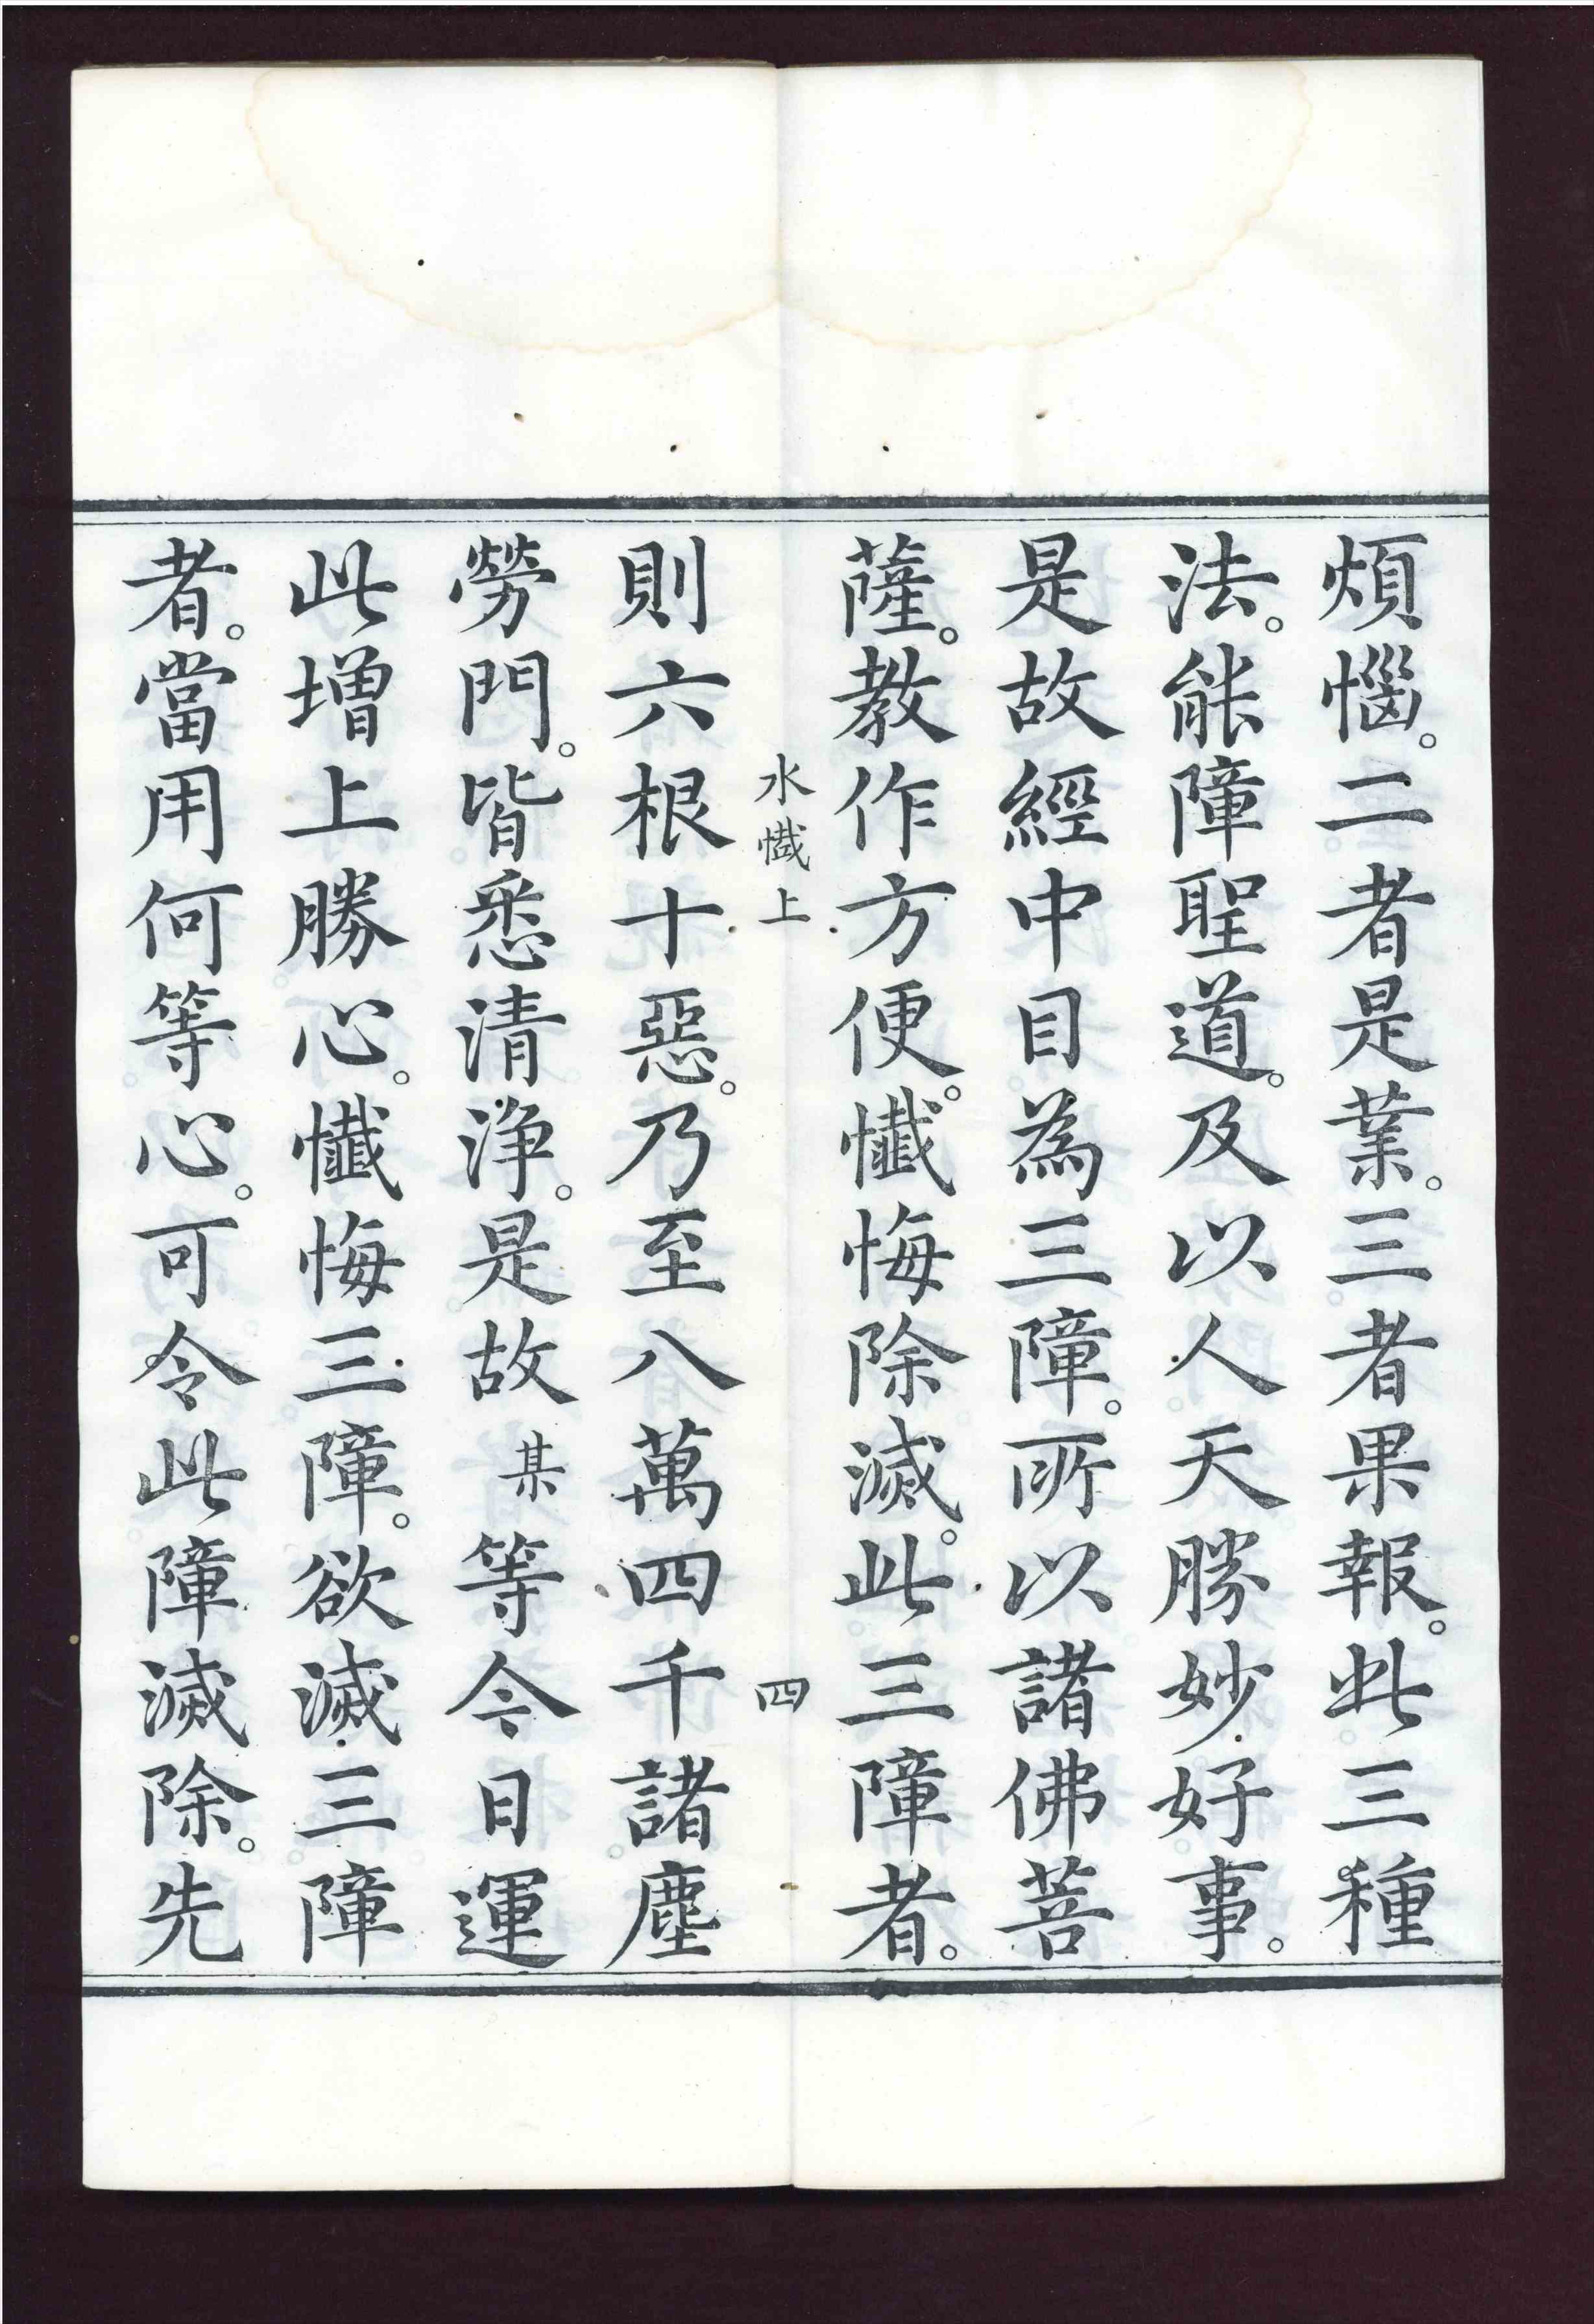 煩惱。二者是業。三者果報。此三種
法。能障聖道。及以人天勝妙好事。
是故經中目為三障。所以諸佛菩
薩。教作方便。懺悔除滅。此三障者。
水懺上 四
則六根十惡。乃至八萬四千諸塵
勞門。皆悉清淨。是故某等今日運
此增上勝心。懺悔三障。欲滅三障
者。當用何等心。可令此障滅除。先